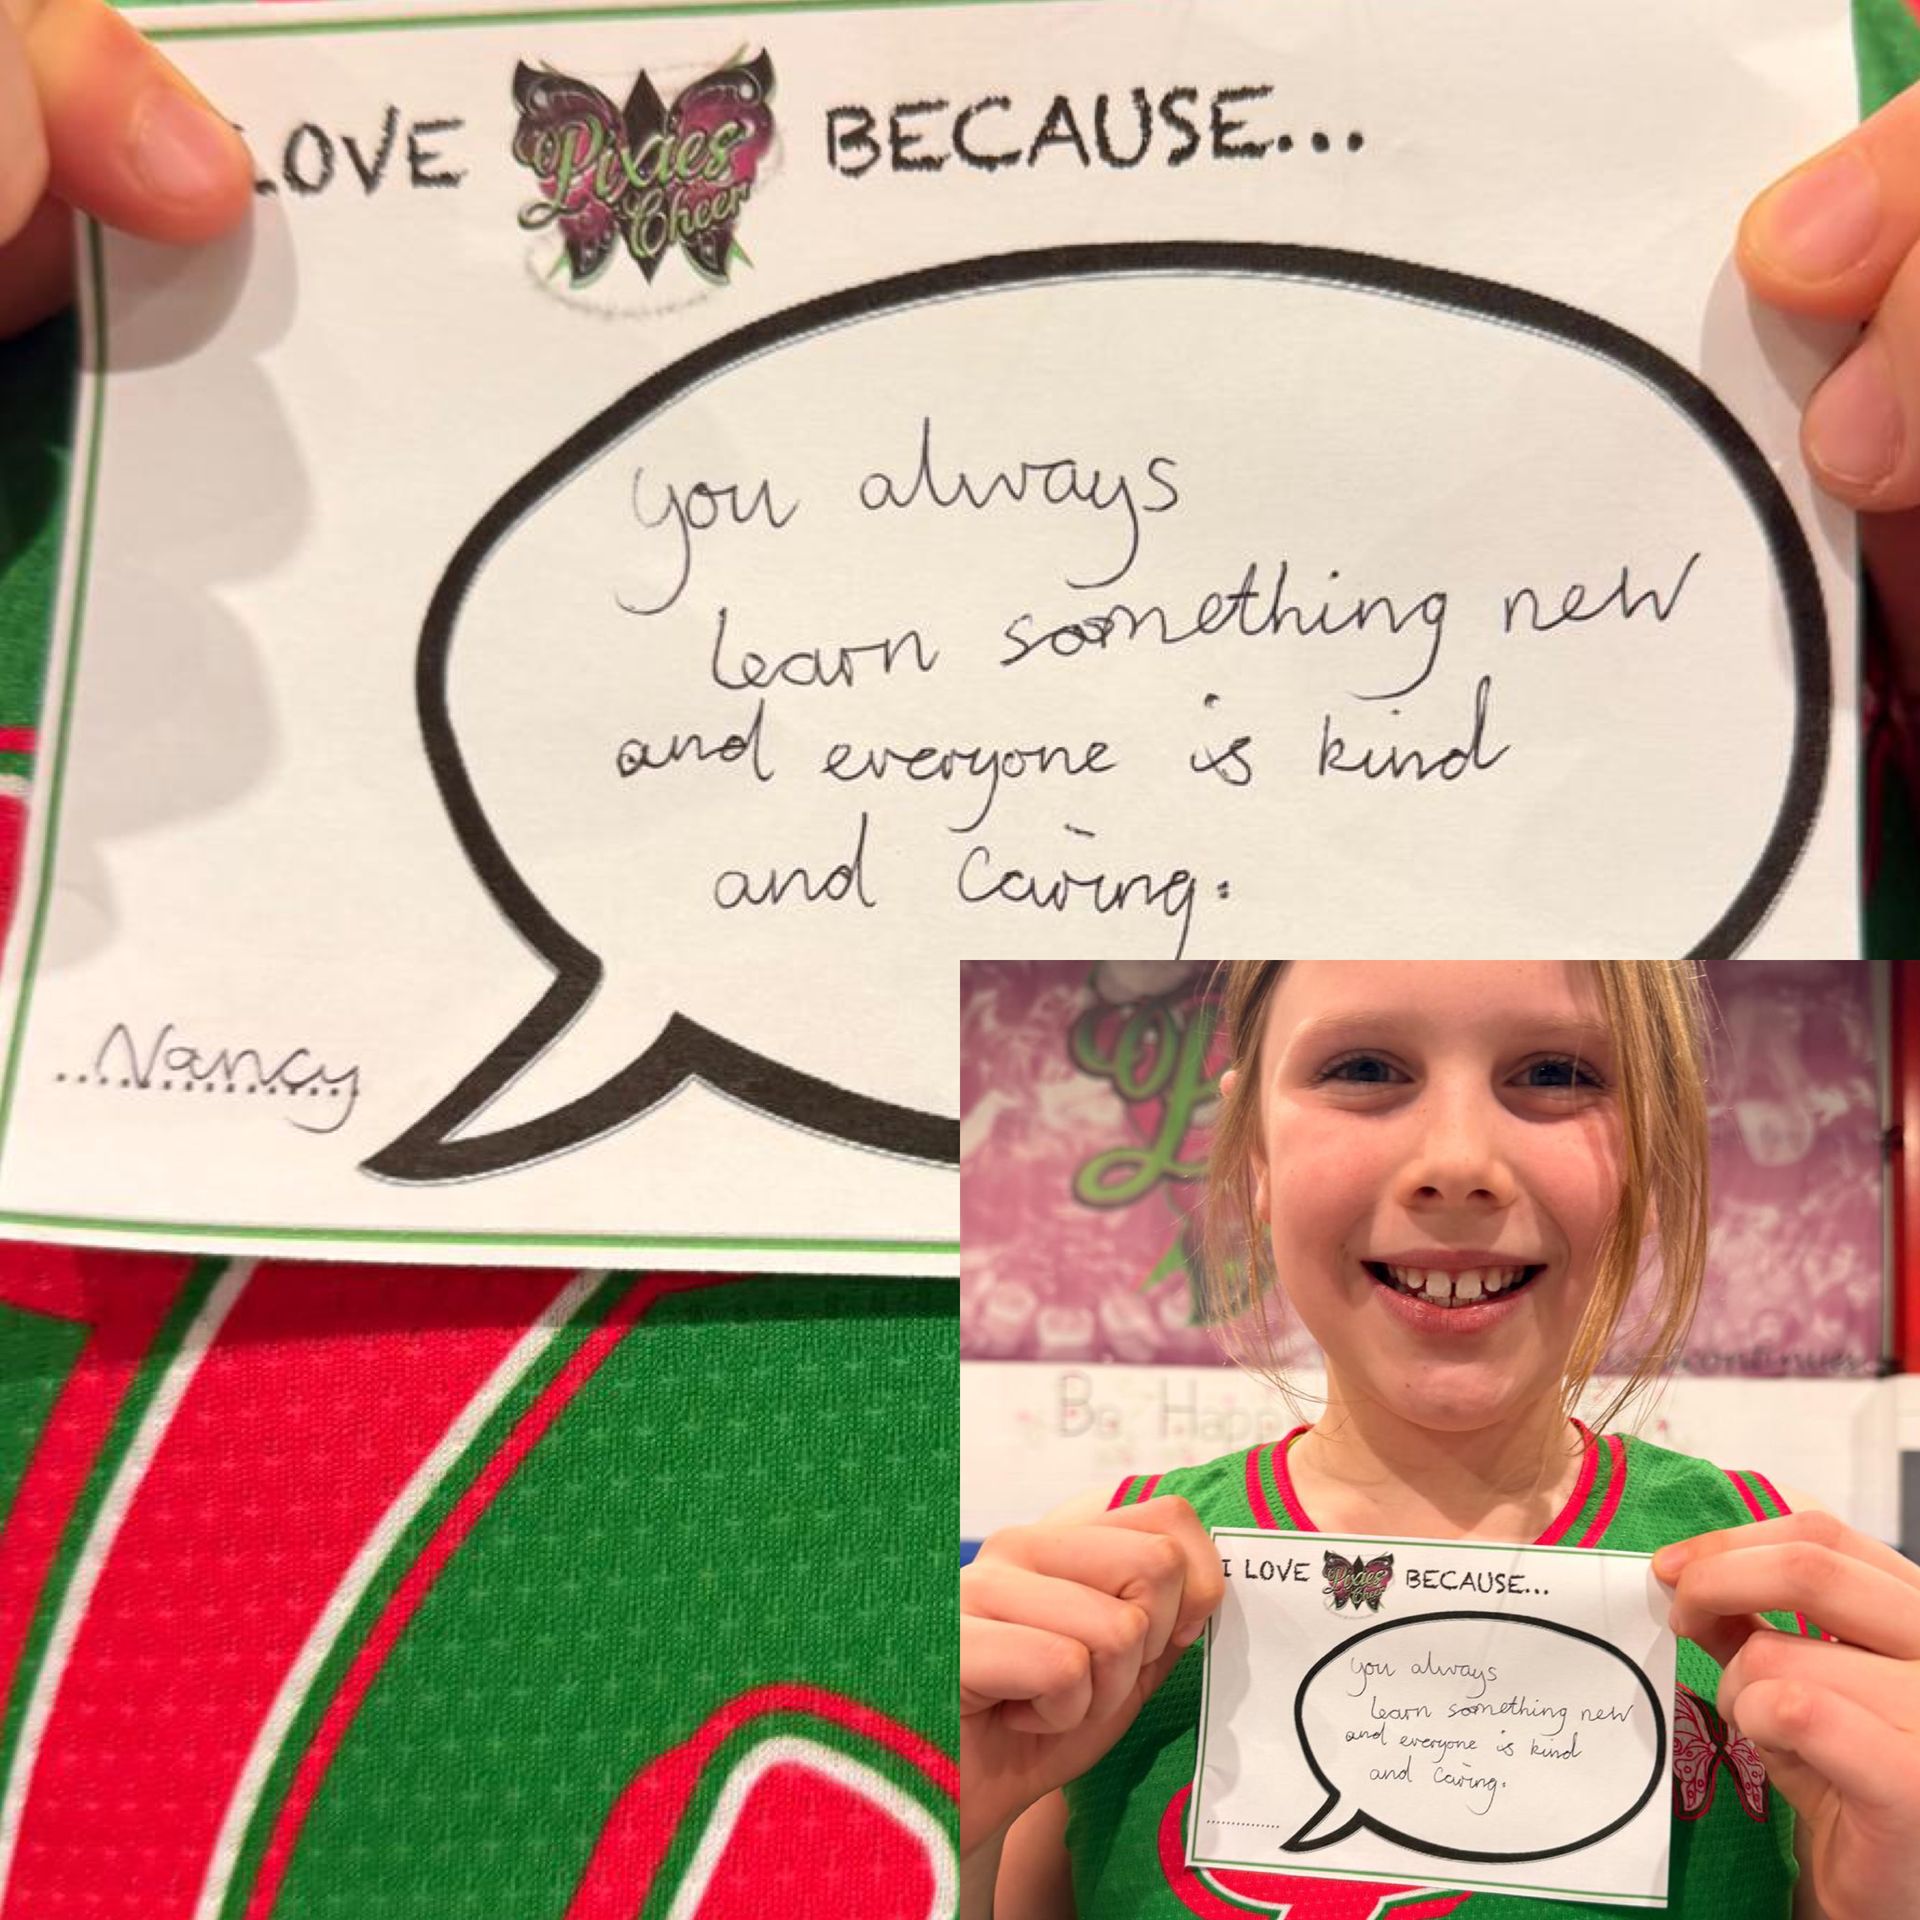 LOVE Pixies Cheer BECAUSE...
you always
learn something new
and everyone is kind
and caring.
Nancy
Be Happ
I LOVE Pixies Cheer BECAUSE...
you always
learn something new
and everyone is kind
and caring.